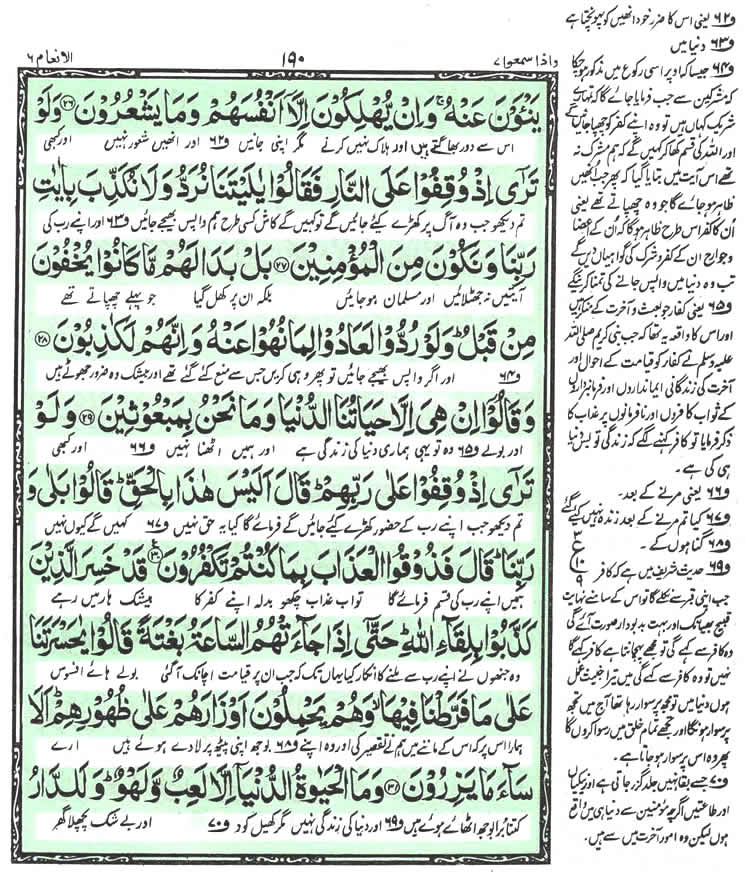 الانعام ٦
١٩٠
واذا سمعوا ٧
يَنْـَٔوْنَ عَنْهُ ۚ وَاِنْ يُّهْلِكُوْنَ اِلَّآ اَنْفُسَهُمْ وَمَا يَشْعُرُوْنَ ﴿٢٦﴾ وَلَوْ
اس سے دور بھاگتے ہیں اور ہلاک نہیں کرتے مگر اپنی جانیں و۶۲ اور انھیں شعور نہیں اور کبھی
تَرٰٓى اِذْ وُقِفُوْا عَلَى النَّارِ فَقَالُوْا يٰلَيْتَنَا نُرَدُّ وَلَا نُكَذِّبَ بِاٰيٰتِ
تم دیکھو جب وہ آگ پر کھڑے کئے جائیں گے تو کہیں گے کاش کسی طرح ہم واپس بھیجے جائیں و۶۳ اور اپنے رب کی
رَبِّنَا وَنَكُوْنَ مِنَ الْمُؤْمِنِيْنَ ﴿٢٧﴾ بَلْ بَدَا لَهُمْ مَّا كَانُوْا يُخْفُوْنَ
آیتیں نہ جھٹلائیں اور مسلمان ہوجائیں بلکہ ان پر کھل گیا جو پہلے چھپاتے تھے
مِنْ قَبْلُ ؕ وَلَوْ رُدُّوْا لَعَادُوْا لِمَا نُهُوْا عَنْهُ وَاِنَّهُمْ لَكٰذِبُوْنَ ﴿٢٨﴾
و۶۴ اور اگر واپس بھیجے جائیں تو پھر وہی کریں جس سے منع کئے گئے تھے اور بیشک وہ ضرور جھوٹے ہیں
وَقَالُوْٓا اِنْ هِىَ اِلَّا حَيَاتُنَا الدُّنْيَا وَمَا نَحْنُ بِمَبْعُوْثِيْنَ ﴿٢٩﴾ وَلَوْ
اور بولے و۶۵ وہ تو یہی ہماری دنیا کی زندگی ہے اور ہمیں اٹھنا نہیں و۶۶ اور کبھی
تَرٰٓى اِذْ وُقِفُوْا عَلٰى رَبِّهِمْ ؕ قَالَ اَلَيْسَ هٰذَا بِالْحَقِّ ؕ قَالُوْا بَلٰى وَ
تم دیکھو جب اپنے رب کے حضور کھڑے کئے جائیں گے فرمائے گا کیا یہ حق نہیں و۶۷ کہیں گے کیوں نہیں
رَبِّنَا ؕ قَالَ فَذُوْقُوا الْعَذَابَ بِمَا كُنْتُمْ تَكْفُرُوْنَ ﴿٣٠﴾ قَدْ خَسِرَ الَّذِيْنَ
ہمیں اپنے رب کی قسم فرمائے گا تو اب عذاب چکھو بدلہ اپنے کفر کا بیشک ہار میں رہے
كَذَّبُوْا بِلِقَآءِ اللّٰهِ ؕ حَتّٰٓى اِذَا جَآءَتْهُمُ السَّاعَةُ بَغْتَةً قَالُوْا يٰحَسْرَتَنَا
وہ جنھوں نے اپنے رب سے ملنے کا انکار کیا یہاں تک کہ جب ان پر قیامت اچانک آگئی بولے ہائے افسوس
عَلٰى مَا فَرَّطْنَا فِيْهَا ۙ وَهُمْ يَحْمِلُوْنَ اَوْزَارَهُمْ عَلٰى ظُهُوْرِهِمْ ؕ اَلَا
ہمارا اس پر کہ اس کے ماننے میں ہم نے تقصیر کی اور وہ اپنے و۶۸ بوجھ اپنی پیٹھ پر لادے ہوئے ہیں ارے
سَآءَ مَا يَزِرُوْنَ ﴿٣١﴾ وَمَا الْحَيٰوةُ الدُّنْيَآ اِلَّا لَعِبٌ وَّلَهْوٌ ؕ وَلَلدَّارُ
کتنا برا بوجھ اٹھائے ہوئے ہیں و۶۹ اور دنیا کی زندگی نہیں مگر کھیل کود و۷۰ اور بے شک پچھلا گھر
و۶۲ یعنی اس کا ضرر خود انھیں کو پہونچتا ہے
و۶۳ دنیا میں
و۶۴ جیسا کہ اوپر اسی رکوع میں مذکور ہوچکا
کہ مشرکین سے جب فرمایا جائے گا کہ تمہارے
شریک کہاں ہیں تو وہ اپنے کفر کو چھپا جائیں گے
اور اللہ کی قسم کھا کر کہیں گے کہ ہم مشرک نہ
تھے اس آیت میں بتایا گیا کہ پھر جب انھیں
ظاہر ہوجائے گا جو وہ چھپاتے تھے یعنی
ان کا کفر اس طرح ظاہر ہوگا کہ ان کے اعضا
و جوارح ان کے کفر و شرک کی گواہیاں دیں گے
تب وہ دنیا میں واپس جانے کی تمنا کریں گے
و۶۵ یعنی کفار جو بعث و آخرت کے منکر ہیں
اور اس کا واقعہ یہ تھا کہ جب نبی کریم صلی اللہ
علیہ وسلم نے کفار کو قیامت کے احوال اور
آخرت کی زندگانی ایمانداروں اور فرمانبرداروں
کے ثواب کافروں اور نافرمانوں پر عذاب کا
ذکر فرمایا تو کافر کہنے لگے کہ زندگی تو بس دنیا
ہی کی ہے۔
و۶۶ یعنی مرنے کے بعد۔
و۶۷ کیا تم مرنے کے بعد زندہ نہیں کئے گئے
و۶۸ گناہوں کے۔
و۶۹ حدیث شریف میں ہے کہ کافر
٣
ع
١٠
٩
جب اپنی قبر سے نکلے گا تو اس کے سامنے نہایت
قبیح بھیانک اور بہت بدبودار صورت آئے گی
وہ کافر سے کہے گی تو مجھے پہچانتا ہے کافر کہے گا
نہیں تو وہ کافر سے کہے گی میں تیرا خبیث عمل
ہوں دنیا میں تو مجھ پر سوار رہا تھا آج میں تجھ
پر سوار ہونگا اور تجھے تمام خلق میں رسوا کروں گا
پھر وہ اس پر سوار ہوجاتا ہے۔
و۷۰ جسے بقا نہیں جلد گزر جاتی ہے اور نیکیاں
اور طاعتیں اگرچہ مؤمنین سے دنیا ہی میں واقع
ہوں لیکن وہ امور آخرت میں سے ہیں۔